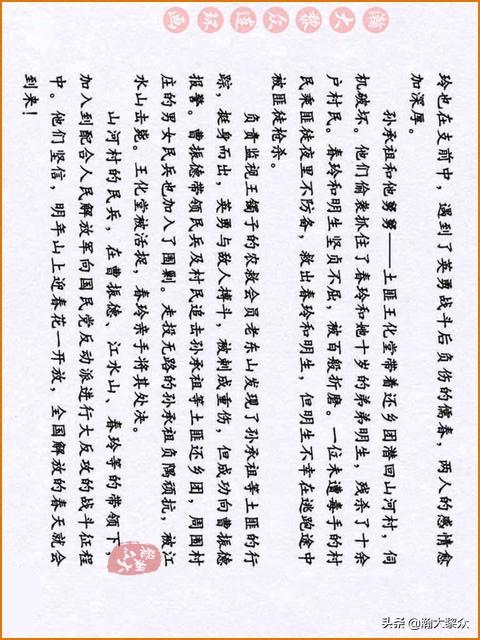 瀚大黎众连环画
玲也在支前中，遇到了英勇战斗后负伤的儒春，两人的感情愈
加深厚。
孙承祖和他舅舅——土匪王化堂带着还乡团潜回山河村，伺
机破坏。他们偷袭抓住了春玲和她十岁的弟弟明生，残杀了十余
户村民。春玲和明生坚贞不屈，被百般折磨。一位未遭毒手的村
民乘匪徒夜里不防备，救出春玲和明生，但明生不幸在逃跑途中
被匪徒枪杀。
负责监视王镯子的农救会员老东山发现了孙承祖等土匪的行
踪，挺身而出，英勇与敌人搏斗，被刺成重伤，但成功向曹振德
报警。曹振德带领民兵及村民追击孙承祖等土匪还乡团，周围村
庄的男女民兵也加入了围剿。走投无路的孙承祖负隅顽抗，被江
水山击毙。王化堂被活捉，春玲亲手将其处决。
山河村的民兵，在曹振德、江水山、春玲等的带领下，
加入到配合人民解放军向国民党反动派进行大反攻的战斗征程
中。他们坚信，明年山上迎春花一开放，全国解放的春天就会
到来！
头条 @瀚大黎众